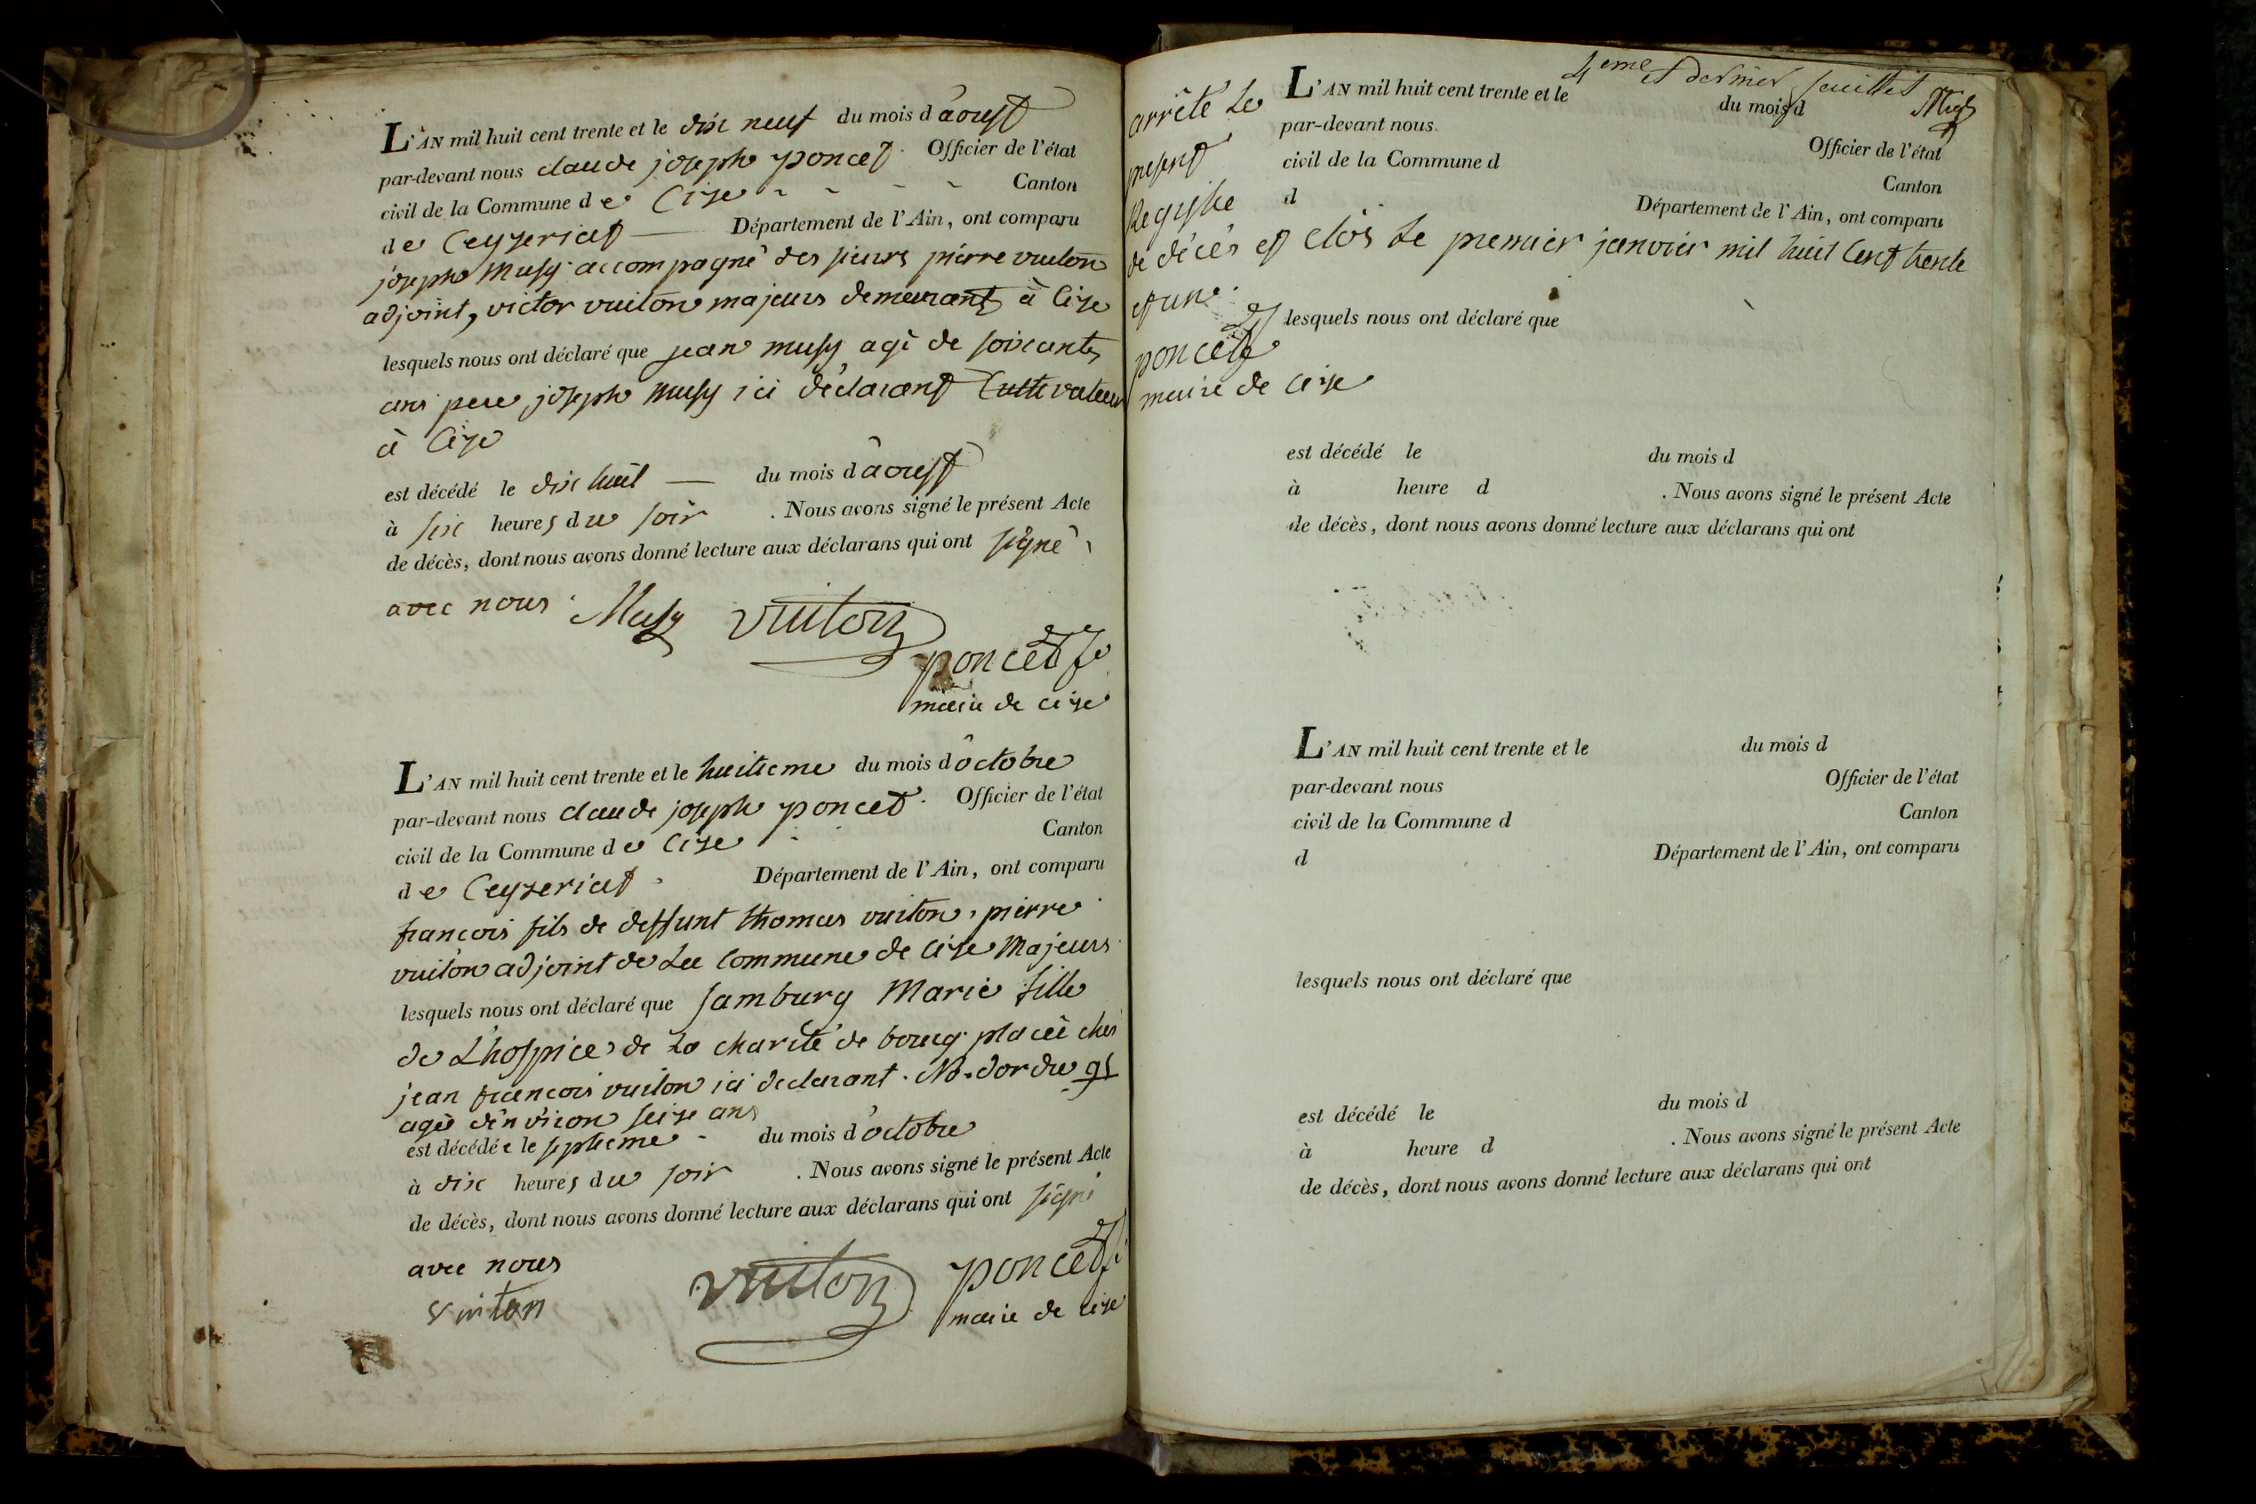 L'AN mil huit cent trente et le dix neuf du mois d'aoust
par-devant nous claude joseph poncet Officier de l'état
civil de la Commune de Cize Canton
de Ceyzeriat Département de l'Ain, ont comparu
joseph Musy accompagné des sieurs pierre vuiton
adjoint, victor vuiton majeurs demeurant à Cize
lesquels nous ont déclaré que jean musy agé de soixante
ans pere joseph Musy ici déclarant Cultivateur
à Cize
est décédé le dix huit du mois d'aoust
à six heures du soir . Nous avons signé le présent Acte
de décès, dont nous avons donné lecture aux déclarans qui ont signé
avec nous Musy vuiton
poncet
maire de cize
L'AN mil huit cent trente et le huitieme du mois d'octobre
par-devant nous claude joseph poncet Officier de l'état
civil de la Commune de Cize Canton
de Ceyzeriat Département de l'Ain, ont comparu
francois fils de deffunt thomas vuiton, pierre
vuiton adjoint de La Commune de Cize Majeurs
lesquels nous ont déclaré que Jamburg Marie fille
de L'hospice de La charité de bourg placée ches
jean francois vuiton ici declarant. No. dordre 91
agé d'environ seize ans
est décédée le septieme du mois d'octobre
à dix heures du soir . Nous avons signé le présent Acte
de décès, dont nous avons donné lecture aux déclarans qui ont signé
avec nous
vuiton vuiton poncet
maire de cize
4eme et dernier feuillet
L'AN mil huit cent trente et le du mois d
par-devant nous Officier de l'état
civil de la Commune d Canton
d Département de l'Ain, ont comparu
arrêté Le
present
Registre
de décès et clos Le premier janvier mil huit Cent trente
et un.
poncet
maire de cize
lesquels nous ont déclaré que
est décédé le du mois d
à heure d . Nous avons signé le présent Acte
de décès, dont nous avons donné lecture aux déclarans qui ont
L'AN mil huit cent trente et le du mois d
par-devant nous Officier de l'état
civil de la Commune d Canton
d Département de l'Ain, ont comparu
lesquels nous ont déclaré que
est décédé le du mois d
à heure d . Nous avons signé le présent Acte
de décès, dont nous avons donné lecture aux déclarans qui ont